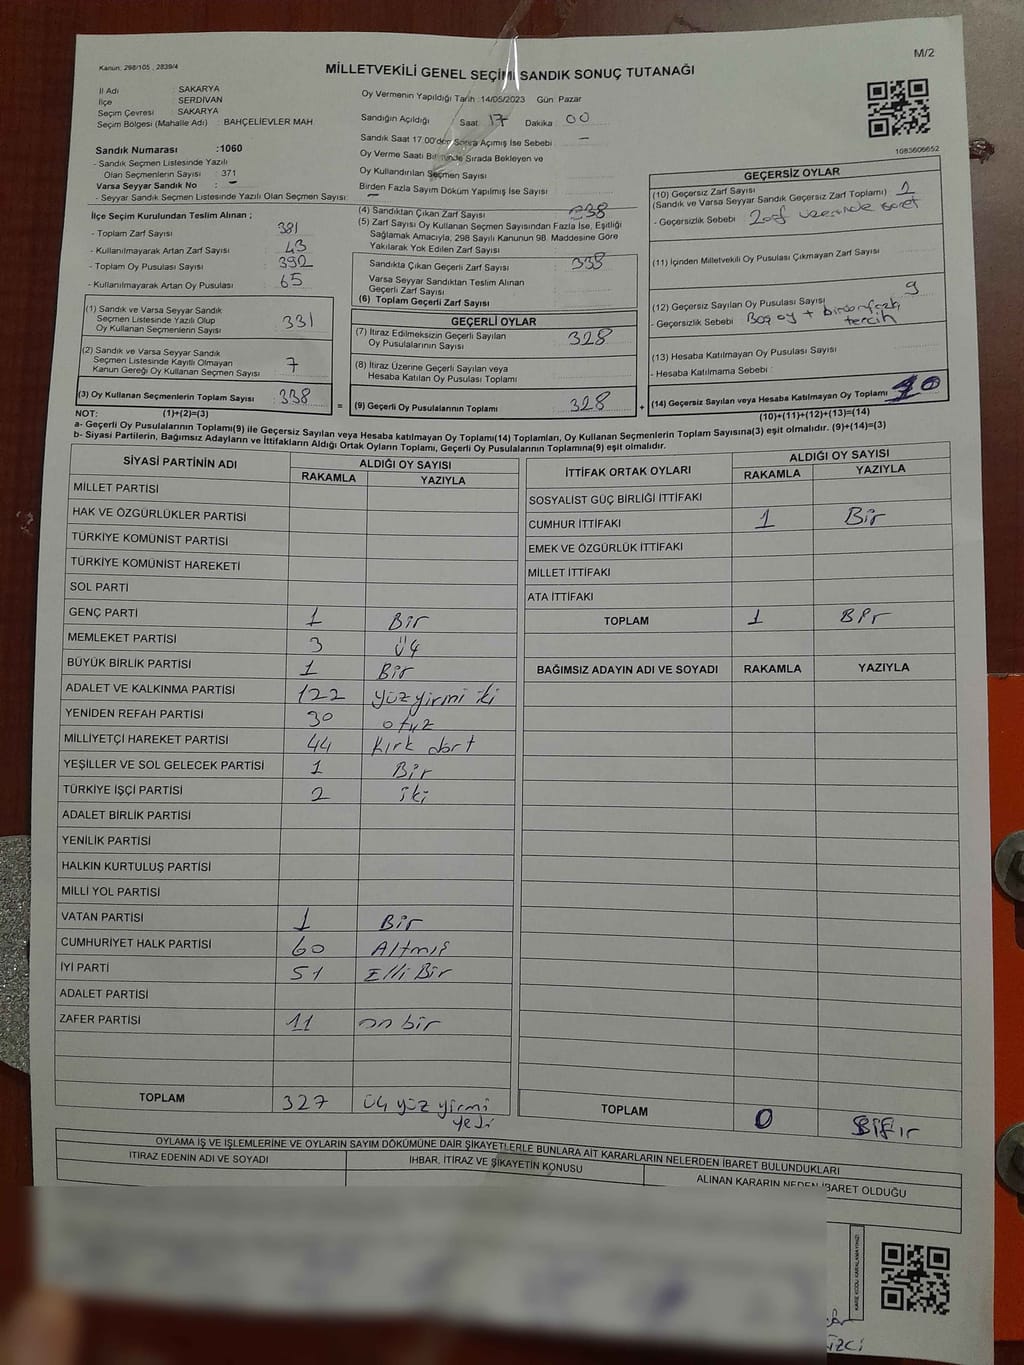 M/2
Kanun, 298/105 , 2839/4
MİLLETVEKİLİ GENEL SEÇİMİ SANDIK SONUÇ TUTANAĞI
İl Adı : SAKARYA
İlçe SERDİVAN
Seçim Çevresi : SAKARYA
Seçim Bölgesi (Mahalle Adı) : BAHÇELİEVLER MAH
Sandık Numarası :1060
- Sandık Seçmen Listesinde Yazılı
Olan Seçmenlerin Sayısı : 371
Varsa Seyyar Sandık No : -
- Seyyar Sandık Seçmen Listesinde Yazılı Olan Seçmen Sayısı: -
Oy Vermenin Yapıldığı Tarih :14/05/2023 Gün: Pazar
Sandığın Açıldığı Saat: 17 Dakika 00
Sandık Saat 17:00'den Sonra Açımış İse Sebebi : -
Oy Verme Saati Bitiminde Sırada Bekleyen ve
Oy Kullandırılan Seçmen Sayısı
Birden Fazla Sayım Döküm Yapılmış İse Sayısı
1083606652
İlçe Seçim Kurulundan Teslim Alınan ;
- Toplam Zarf Sayısı : 381
- Kullanılmayarak Artan Zarf Sayısı : 43
- Toplam Oy Pusulası Sayısı : 392
- Kullanılmayarak Artan Oy Pusulası : 65
(1) Sandık ve Varsa Seyyar Sandık
Seçmen Listesinde Yazılı Olup
Oy Kullanan Seçmenlerin Sayısı : 331
(2) Sandık ve Varsa Seyyar Sandık
Seçmen Listesinde Kayıtlı Olmayan
Kanun Gereği Oy Kullanan Seçmen Sayısı : 7
(3) Oy Kullanan Seçmenlerin Toplam Sayısı : 338
(4) Sandıktan Çıkan Zarf Sayısı : 338
(5) Zarf Sayısı Oy Kullanan Seçmen Sayısından Fazla İse, Eşitliği
Sağlamak Amacıyla, 298 Sayılı Kanunun 98. Maddesine Göre
Yakılarak Yok Edilen Zarf Sayısı
Sandıkta Çıkan Geçerli Zarf Sayısı : 338
Varsa Seyyar Sandıktan Teslim Alınan
Geçerli Zarf Sayısı
(6) Toplam Geçerli Zarf Sayısı
GEÇERLİ OYLAR
(7) İtiraz Edilmeksizin Geçerli Sayılan
Oy Pusulalarının Sayısı : 328
(8) İtiraz Üzerine Geçerli Sayılan veya
Hesaba Katılan Oy Pusulası Toplamı
= (9) Geçerli Oy Pusulalarının Toplamı : 328 +
GEÇERSİZ OYLAR
(10) Geçersiz Zarf Sayısı
(Sandık ve Varsa Seyyar Sandık Geçersiz Zarf Toplamı) 1
- Geçersizlik Sebebi : Zarf üzerinde işaret
(11) İçinden Milletvekili Oy Pusulası Çıkmayan Zarf Sayısı
(12) Geçersiz Sayılan Oy Pusulası Sayısı 9
- Geçersizlik Sebebi : Boş oy + birden fazla
tercih
(13) Hesaba Katılmayan Oy Pusulası Sayısı
- Hesaba Katılmama Sebebi :
(14) Geçersiz Sayılan veya Hesaba Katılmayan Oy Toplamı : 10
NOT: (1)+(2)=(3) (10)+(11)+(12)+(13)=(14)
a- Geçerli Oy Pusulalarının Toplamı(9) ile Geçersiz Sayılan veya Hesaba katılmayan Oy Toplamı(14) Toplamları, Oy Kullanan Seçmenlerin Toplam Sayısına(3) eşit olmalıdır. (9)+(14)=(3)
b- Siyasi Partilerin, Bağımsız Adayların ve İttifakların Aldığı Ortak Oyların Toplamı, Geçerli Oy Pusulalarının Toplamına(9) eşit olmalıdır.
SİYASİ PARTİNİN ADI ALDIĞI OY SAYISI
RAKAMLA YAZIYLA
MİLLET PARTİSİ
HAK VE ÖZGÜRLÜKLER PARTİSİ
TÜRKİYE KOMÜNİST PARTİSİ
TÜRKİYE KOMÜNİST HAREKETİ
SOL PARTİ
GENÇ PARTİ 1 Bir
MEMLEKET PARTİSİ 3 Üç
BÜYÜK BİRLİK PARTİSİ 1 Bir
ADALET VE KALKINMA PARTİSİ 122 yüz yirmi iki
YENİDEN REFAH PARTİSİ 30 otuz
MİLLİYETÇİ HAREKET PARTİSİ 44 Kırk dört
YEŞİLLER VE SOL GELECEK PARTİSİ 1 Bir
TÜRKİYE İŞÇİ PARTİSİ 2 iki
ADALET BİRLİK PARTİSİ
YENİLİK PARTİSİ
HALKIN KURTULUŞ PARTİSİ
MİLLİ YOL PARTİSİ
VATAN PARTİSİ 1 Bir
CUMHURİYET HALK PARTİSİ 60 Altmış
İYİ PARTİ 51 Elli Bir
ADALET PARTİSİ
ZAFER PARTİSİ 11 on bir
TOPLAM 327 üç yüz yirmi
yedi
İTTİFAK ORTAK OYLARI ALDIĞI OY SAYISI
RAKAMLA YAZIYLA
SOSYALİST GÜÇ BİRLİĞİ İTTİFAKI
CUMHUR İTTİFAKI 1 Bir
EMEK VE ÖZGÜRLÜK İTTİFAKI
MİLLET İTTİFAKI
ATA İTTİFAKI
TOPLAM 1 Bir
BAĞIMSIZ ADAYIN ADI VE SOYADI RAKAMLA YAZIYLA
TOPLAM 0
OYLAMA İŞ VE İŞLEMLERİNE VE OYLARIN SAYIM DÖKÜMÜNE DAİR ŞİKAYETLERLE BUNLARA AİT KARARLARIN NELERDEN İBARET BULUNDUKLARI
İTİRAZ EDENİN ADI VE SOYADI İHBAR, İTİRAZ VE ŞİKAYETİN KONUSU ALINAN KARARIN NEDEN İBARET OLDUĞU
KARE KODU KARALAMAYINIZ!